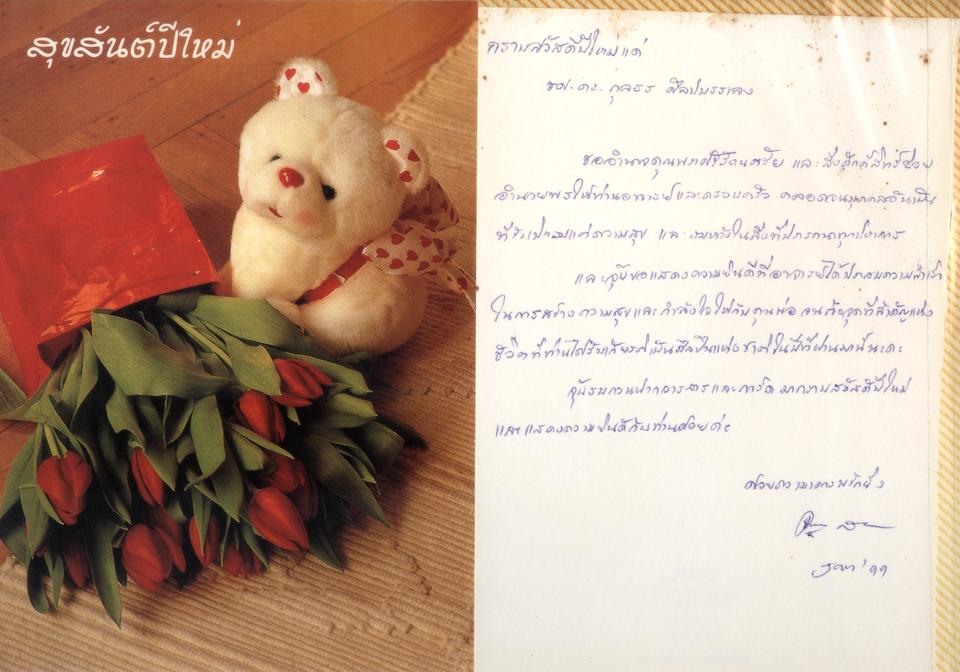 สุขสันต์ปีใหม่
กราบสวัสดีปีใหม่แด่
กุลธร ศิลปบรรเลง
ขออำนาจคุณพระศรีรัตนตรัย และสิ่งศักดิ์สิทธิ์ช่วย
อำนวยพรให้ท่านอาจารย์และครอบครัว ตลอดจน
แต่ความสุข และสมหวังในสิ่งที่ปรารถนาทุกประการ
และขอแสดงความยินดีที่อาจารย์ได้ประสบความสำเร็จ
ในการสร้างความสุขและกำลังใจให้กับคุณพ่อ จนถึงจุดที่สำคัญแห่ง
ชีวิต ที่ท่านได้รับเป็นศิลปินแห่งชาติในปีที่ผ่านมานี้นะคะ
รบกวนฝากและการ์ด มากราบสวัสดีปีใหม่
และแสดงความยินดีกับท่านด้วยค่ะ
ด้วยความเคารพรักยิ่ง